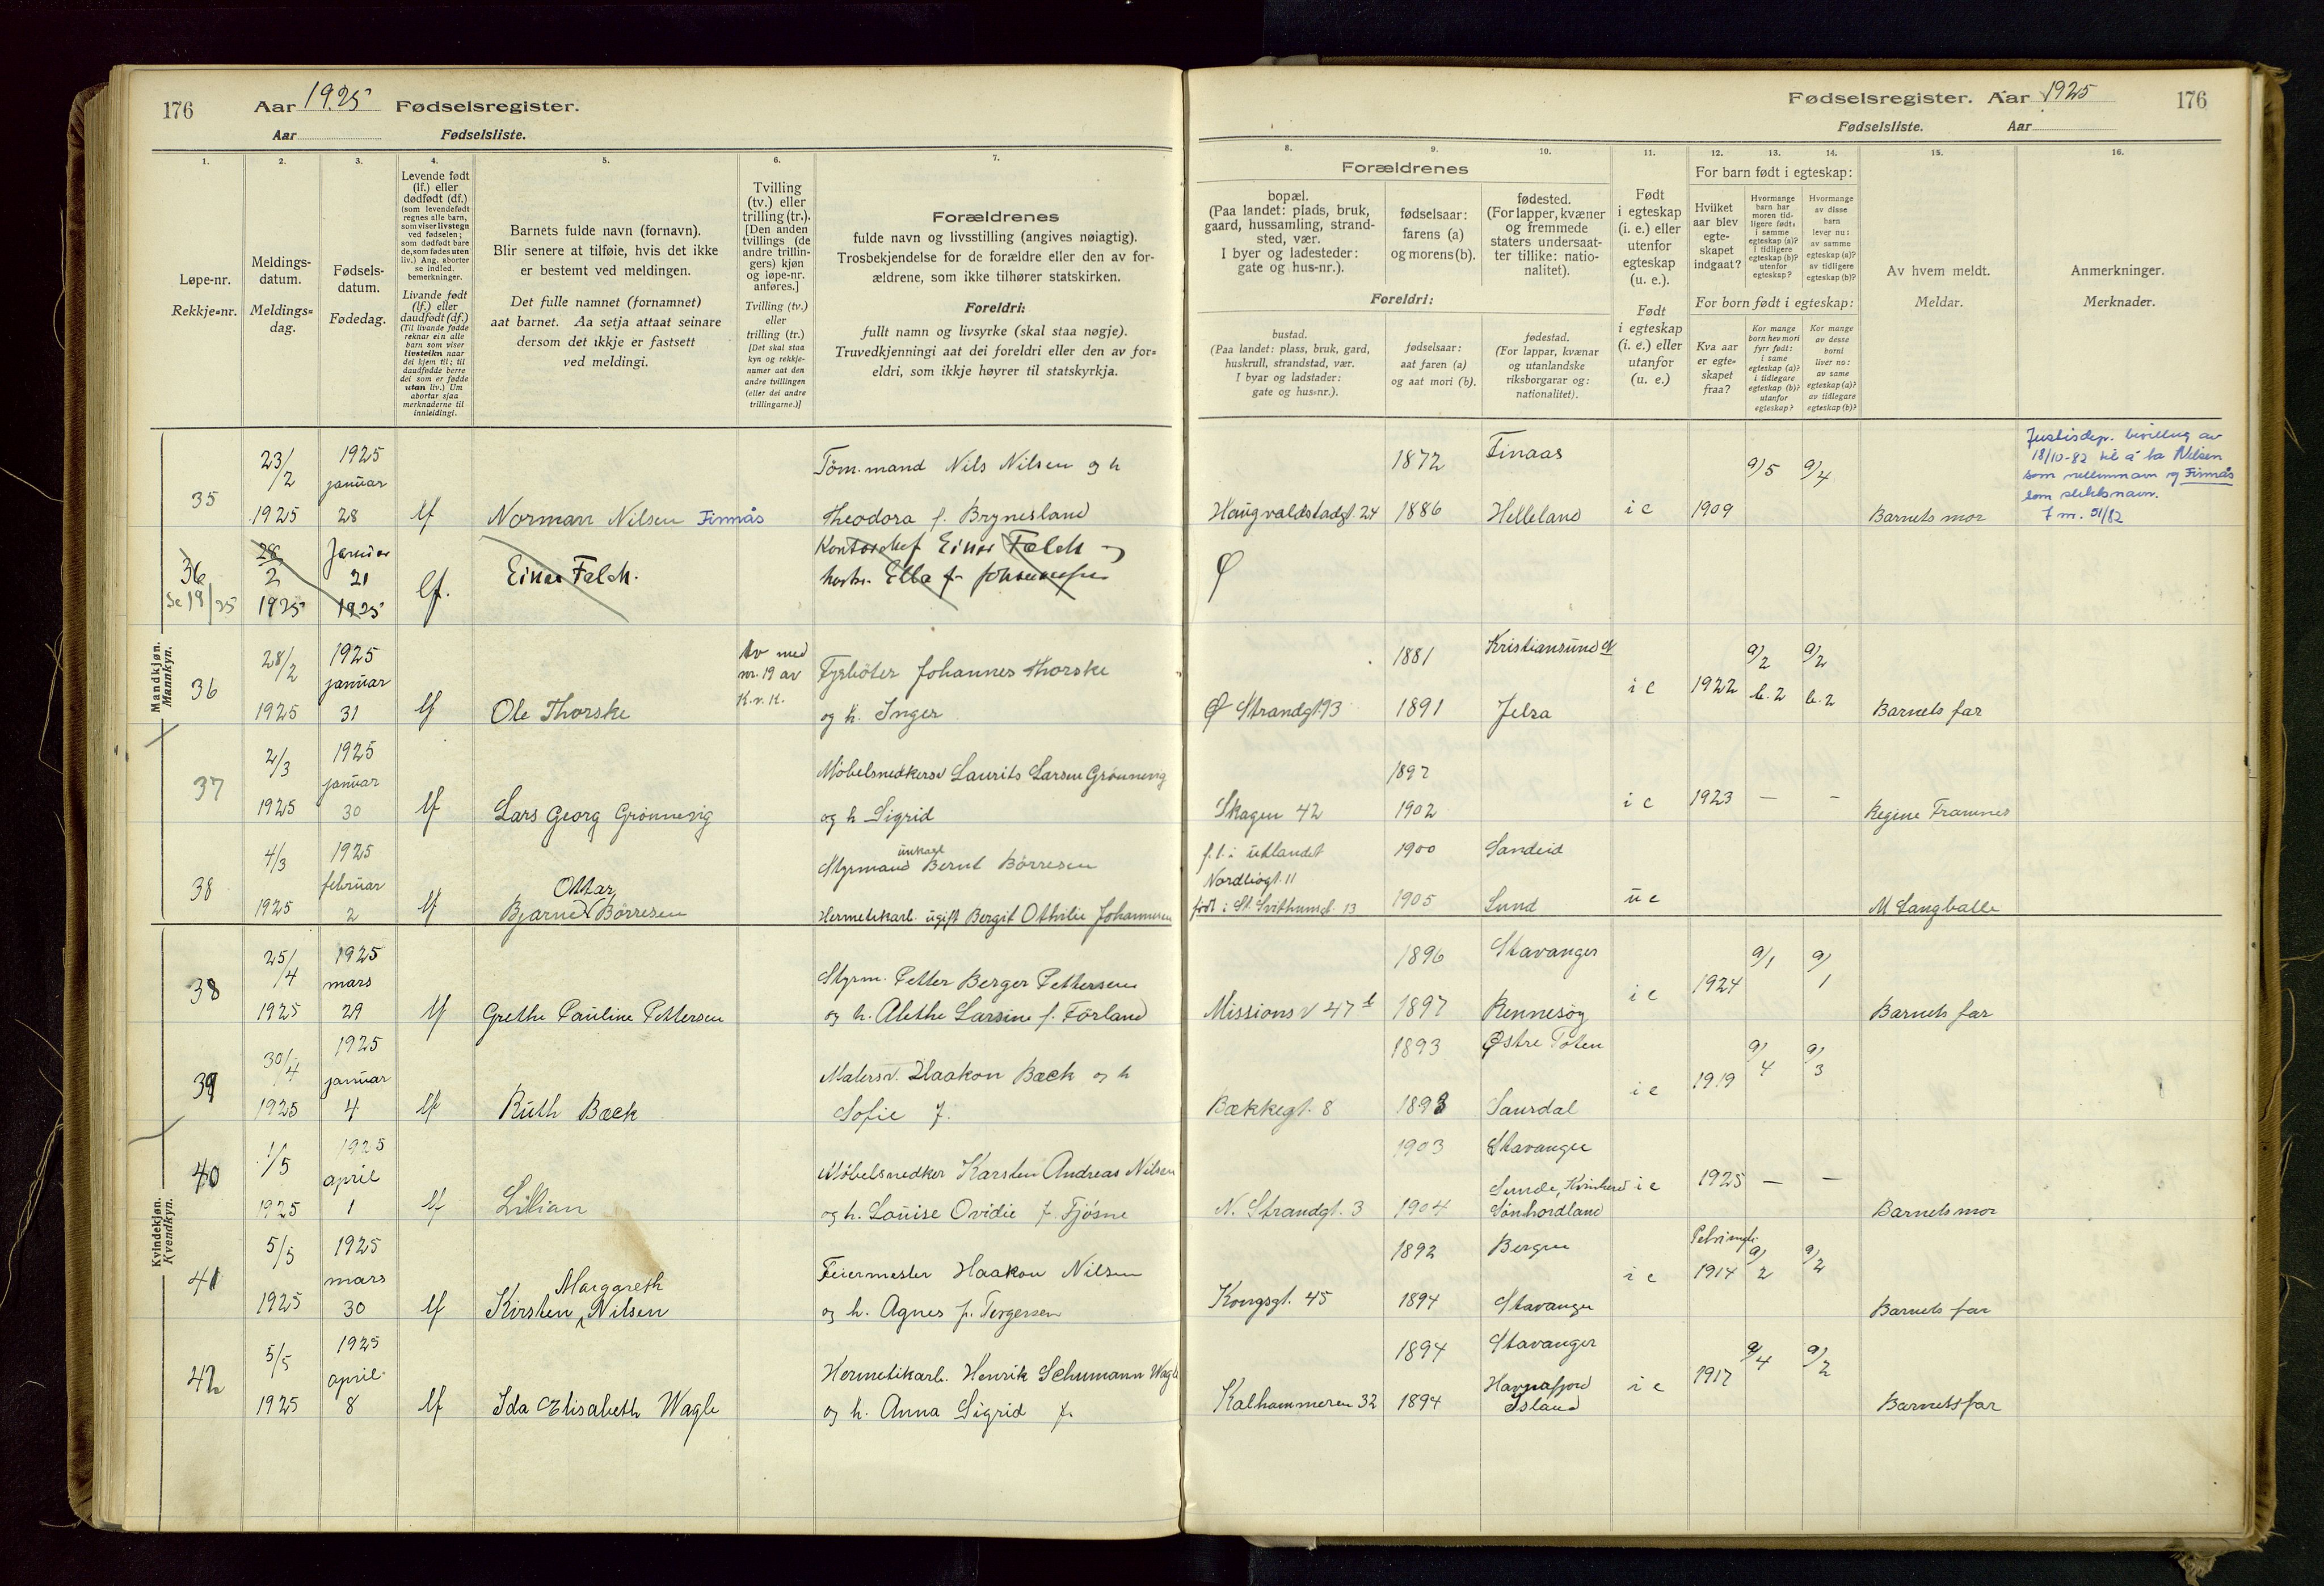 176 Aar 1925 Fødselsregister.
Aar Fødselsliste.
1. 2. 3. 4. 5. 6. 7.
Løpe-nr.
Rekkje-nr.
Meldings-
datum.
Meldings-
dag.
Fødsels-
datum.
Fødedag.
Levende født
(lf.) eller
dødfødt (df.)
(som levendefødt
regnes alle barn,
som viser livstegn
ved fødselen;
som dødfødt bare
de, som fødes uten
liv.) Ang. aborter
se indled.
bemerkninger.
Livande født
(lf.) eller
daudfødt (df.)
(Til livande fødde
reknar ein alle
barn som viser
livsteikn naar
dei kjem til; til
daudfødde berre
dei som er fødde
utan liv.) Um
abortar sjaa
merknaderne til
innleidingi.
Barnets fulde navn (fornavn).
Blir senere at tilføie, hvis det ikke
er bestemt ved meldingen.
Det fulle namnet (fornamnet)
aat barnet. Aa setja attaat seinare
dersom det ikkje er fastsett
ved meldingi.
Tvilling
(tv.) eller
trilling (tr.).
[Den anden
tvillings (de
andre trillin-
gers) kjøn
og løpe-nr.
anføres.]
Tvilling (tv.)
eller
trilling (tr.)
[Det skal staa
kyn og rekkje-
numer aat den
andre tvillingen
(eller dei andre
trillingarne.)]
Forældrenes
fulde navn og livsstilling (angives nøiagtig).
Trosbekjendelse for de forældre eller den av for-
ældrene, som ikke tilhører statskirken.
Foreldri:
fullt namn og livsyrke (skal staa nøgje).
Truvedkjenningi aat dei foreldri eller den av for-
eldri, som ikkje høyrer til statskyrkja.
Mandkjøn.
Mannkyn.
35 23/2 1925 1925 januar 28 lf Norman Nilsen Finnås
Tøm.mand Nils Nilsen og h
Theodora f. Brynesland
36 se 18/25 28 2 1925 Januar 21 1925 lf. Einar Falch.
Kontorchef Einar Falch og
hustr. Ella f. Johannessen
36 28/2 1925 1925 januar 31 lf Ole Thorske
tv med
nr. 19 av
K.v.K.
Fyrbøter Johannes Thorske
og h. Inger
37 2/3 1925 1925 januar 30 lf Lars Georg Grønnevig
Møbelsnedkersv Laurits Larsen Grønnevig
og h Sigrid
38 4/3 1925 1925 februar 2 lf Bjarne Ottar Børresen
Styrmand Bernt Børresen
Hermetikarb. ugift Bergit Othilie Johannesen
Kvindekjøn.
Kvendkyn.
38 25/4 1925 1925 mars 29 lf Grethe Pauline Pettersen
Styrm. Petter Berger Pettersen
og h. Alethe Larsine f. Førland
39 30/4 1925 1925 januar 4 lf Ruth Bæck
Malersv. Haakon Bæck og h
Sofie f.
40 1/5 1925 1925 april 1 lf Lillian
Møbelsnedker Karsten Andreas Nilsen
og h. Louise Ovidie f. Fjøsne
41 5/5 1925 1925 mars 30 lf Kirsten Margareth Nilsen
Feiermester Haakon Nilsen
og h. Agnes f. Torgersen
42 5/5 1925 1925 april 8 lf Ida Elisabeth Wagle
Hermetikarb. Henrik Schumann Wagle
og h. Anna Sigrid f.
Fødselsregister. Aar 1925 176
Fødselsliste. Aar
8. 9. 10. 11. 12. 13. 14. 15. 16.
Forældrenes
bopæl.
(Paa landet: plads, bruk,
gaard, hussamling, strand-
sted, vær.
I byer og ladesteder:
gate og hus-nr.).
fødselsaar:
farens (a)
og morens (b).
fødested.
(For lapper, kvæner
og fremmede
staters undersaat-
ter tillike: natio-
nalitet).
Foreldri:
bustad.
(Paa landet: plass, bruk, gard,
huskrull, strandstad, vær.
I byar og ladstader:
gate og hus-nr.).
fødselsaar:
aat faren (a)
og aat mori (b).
fødestad.
(For lappar, kvænar
og utanlandske
riksborgarar og:
nationalitet).
Født
i egteskap
(i. e.) eller
utenfor
egteskap
(u. e.).
Født
i egteskap
(i. e.) eller
utanfor
(u. e.)
For barn født i egteskap:
Hvilket
aar blev
egte-
skapet
indgaat?
Hvormange
barn har
moren tid-
ligere født:
i samme
egteskap (a)?
i tidligere
egteskap (b)?
utenfor
egteskap?
Hvormange
av disse
barn
lever nu:
av samme
egteskap (a)?
av tidligere
egteskap (b)?
For born født i egteskap:
Kva aar
er egte-
skapet
fraa?
Kor mange
born hev mori
fyrr født:
i same
egteskap (a)?
i tidlegare
egteskap (b)?
utanfor
egteskap?
Kor mange
av desse
borni
liver no:
av same
egteskap (a)?
av tidlegare
egteskap (b)?
Av hvem meldt.
Meldar.
Anmerkninger.
Merknader.
Haugvaldstadgt. 24 1872 Finaas
1886 Helleland i e 1909 a/5 a/4 Barnets mor
Justisdep. bevilling av
18/10-82 til å ta Nilsen
som mellomnavn og Finnås
som slektsnavn.
J nr. 51/82
Φ
Φ Strandgt. 93 1881 Kristiansund N
1891 Jelsa i e 1922 a/2 b.2 a/2 b.2 Barnets far
Skagen 42 1897
1902 i e 1923 — — Regine Framnes
f.t. i utlandet 1900 Sandeid
Nordbøgt. 11
født i St. Svithunsgt. 13 1905 Lund u e M Langballe
Missionsv 47 b 1896 Stavanger
1897 Rennesøy i e 1924 a/1 a/1 Barnets far
Bækkegt. 8 1893 Østre Toten
1893 Saurdal i e 1919 a/4 a/3
N. Strandgt. 3 1903 Stavanger
1904 Sunde, Kvinherd
Sønhordland i e 1925 — — Barnets mor
Kongsgt. 45 1892 Bergen
1894 Stavanger i e Petrimgh. 1914 a/2 a/2 Barnets far
Kalhammeren 32 1894 Stavanger
1894 Havnafjord
Island i e 1917 a/4 a/2 Barnets far